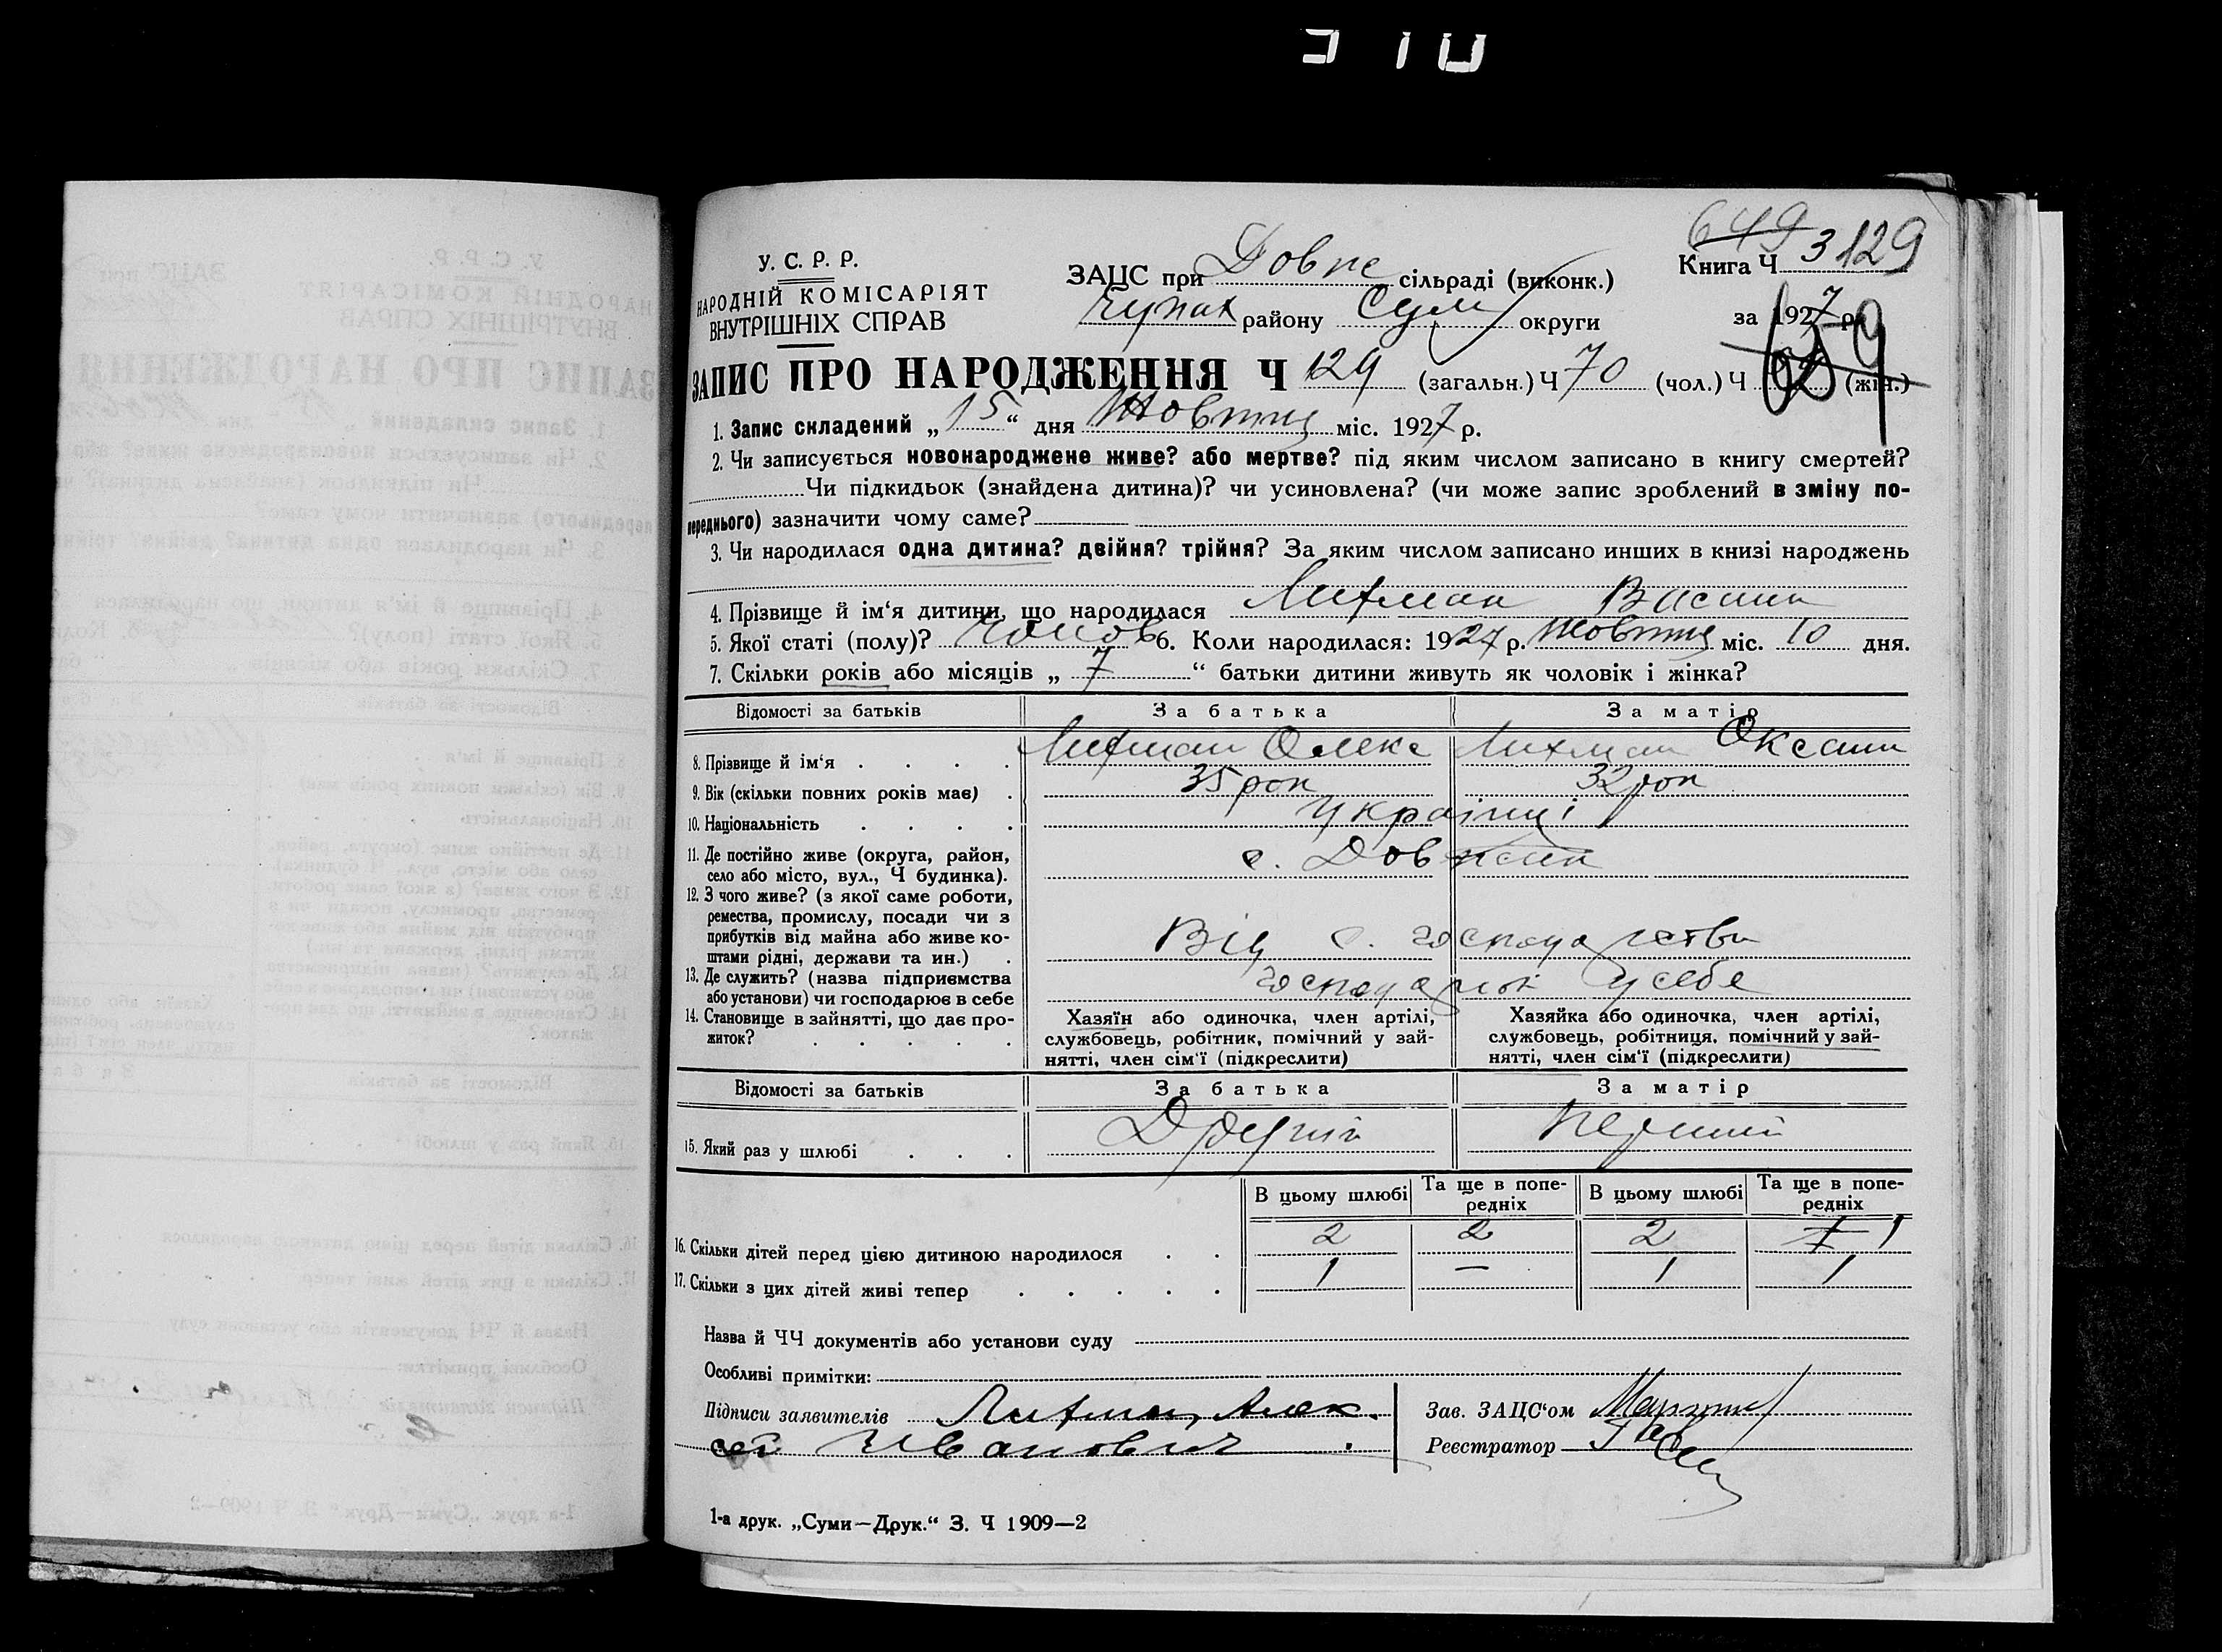 У. С. Р. Р.
НАРОДНІЙ КОМІСАРІЯТ
ВНУТРІШНІХ СПРАВ
ЗАЦС при Довж сільраді (виконк.)
Чупах району Сум округи
649 3 129
Книга Ч
за 1927 р.
659
ЗАПИС ПРО НАРОДЖЕННЯ Ч 129 (загальн.) Ч 70 (чол.) Ч (жін.)
1. Запис складений „ 15 “ дня Жовтня міс. 1927 р.
2. Чи записується новонароджене живе? або мертве? під яким числом записано в книгу смертей?
Чи підкидьок (знайдена дитина)? чи усиновлена? (чи може запис зроблений в зміну по-
переднього) зазначити чому саме?
3. Чи народилася одна дитина? двійня? трійня? За яким числом записано инших в книзі народжень
4. Прізвище й ім‘я дитини, що народилася Лихман Василь
5. Якої статі (полу)? Чолов 6. Коли народилася: 1927 р. Жовтня міс. 10 дня.
7. Скільки років або місяців „ 7 “ батьки дитини живуть як чоловік і жінка?
Відомості за батьків За батька За матір
8. Прізвище й ім‘я Лихман Олекс Лихман Оксана
9. Вік (скільки повних років має) 35 рок 32 рок
10. Національність Українці
11. Де постійно живе (округа, район,
село або місто, вул., Ч будинка). с. Довжик
12. З чого живе? (з якої саме роботи,
ремества, промислу, посади чи з
прибутків від майна або живе ко-
штами рідні, держави та ин.) Від с. господарства
13. Де служить? (назва підприємства
або установи) чи господарює в себе господарює у себе
14. Становище в зайнятті, що дає про-
житок?
Хазяїн або одиночка, член артілі,
службовець, робітник, помічний у зай-
нятті, член сім‘ї (підкреслити)
Хазяйка або одиночка, член артілі,
службовець, робітниця, помічний у зай-
нятті, член сім‘ї (підкреслити)
Відомості за батьків За батька За матір
15. Який раз у шлюбі Другий Перший
В цьому шлюбі Та ще в попе-
редніх В цьому шлюбі Та ще в попе-
редніх
16. Скільки дітей перед цією дитиною народилося 2 2 2 1 1
17. Скільки з цих дітей живі тепер 1 — 1 1
Назва й ЧЧ документів або установи суду
Особливі примітки:
Підписи заявителів Лихман Алек.
сей Иванович
Зав. ЗАЦС‘ом
Реєстратор
1-а друк. „Суми—Друк.“ З. Ч 1909—2